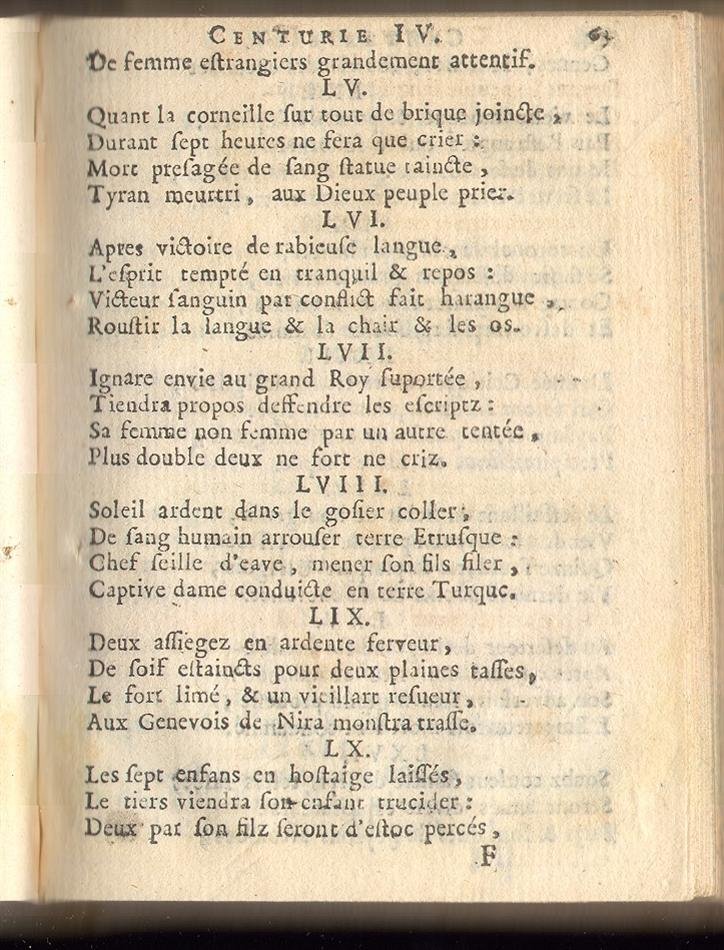 CENTURIE IV. 63
De femme eſtrangiers grandement attentif.
LV.
Quant la corneille ſur tout de brique joincte,
Durant ſept heures ne fera que crier :
Mort preſagée de ſang ſtatue taincte,
Tyran meurtri, aux Dieux peuple prier.
LVI.
Apres victoire de rabieuſe langue,
L'eſprit tempté en tranquil & repos :
Victeur ſanguin par conflict fait harangue,
Rouſtir la langue & la chair & les os.
LVII.
Ignare envie au grand Roy ſuportée,
Tiendra propos deffendre les eſcriptz :
Sa femme non femme par un autre tentée,
Plus double deux ne fort ne criz.
LVIII.
Soleil ardent dans le goſier coller,
De ſang humain arrouſer terre Etruſque :
Chef ſeille d'eave, mener ſon fils filer,
Captive dame conduicte en terre Turque.
LIX.
Deux aſſiegez en ardente ferveur,
De ſoif eſtaincts pour deux plaines taſſes,
Le fort limé, & un vieillart reſueur,
Aux Genevois de Nira monſtra traſſe.
LX.
Les ſept enfans en hoſtaige laiſſés,
Le tiers viendra ſon enfant trucider :
Deux par ſon filz ſeront d'eſtoc percés,
F